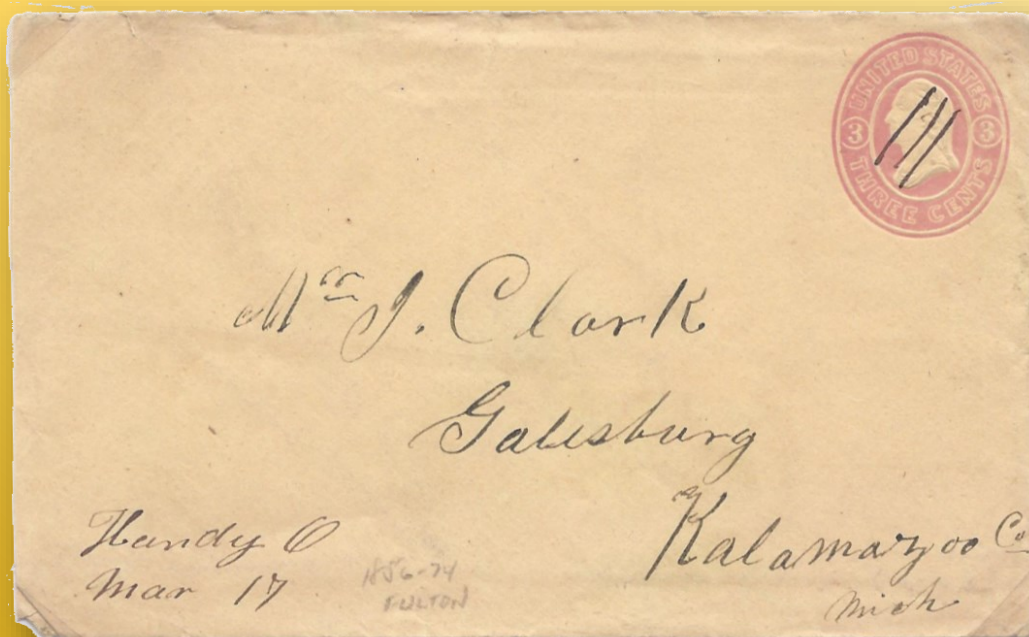 UNITED STATES
3 3
THREE CENTS
Mr J. Clark
Galesburg
Kalamazoo Co
Mich
Handy O
Mar 17
1856-74
FULTON